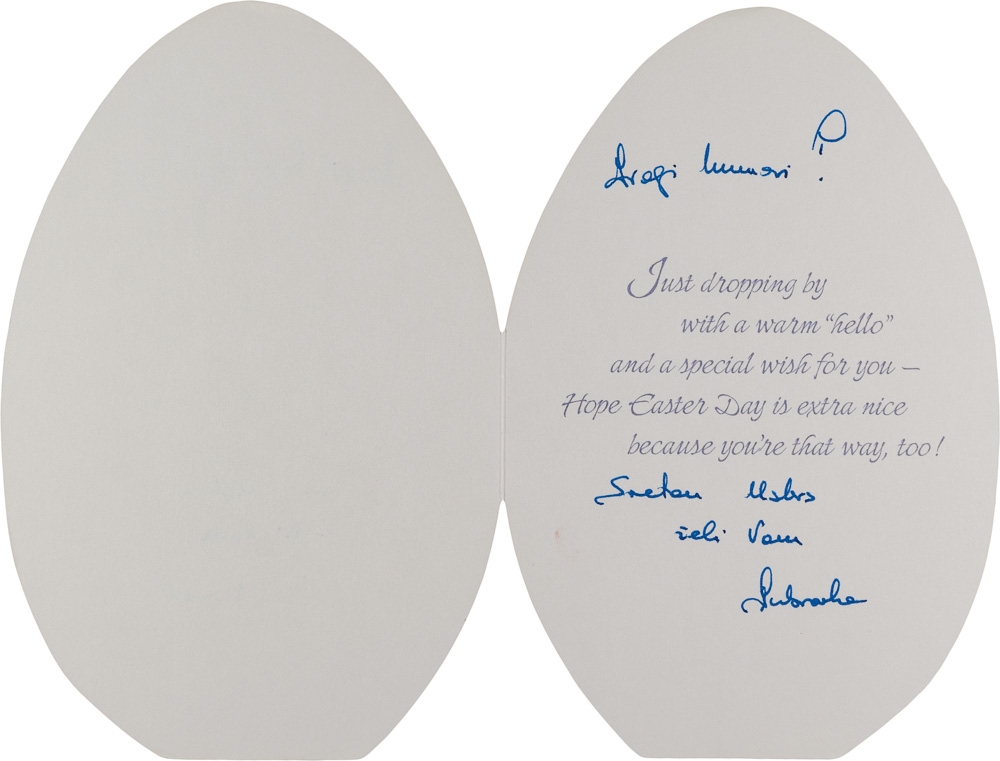 Dragi kumovi!
Just dropping by
with a warm “hello”
and a special wish for you —
Hope Easter Day is extra nice
because you're that way, too!
Sretan Uskrs
želi Vam
Dubravka